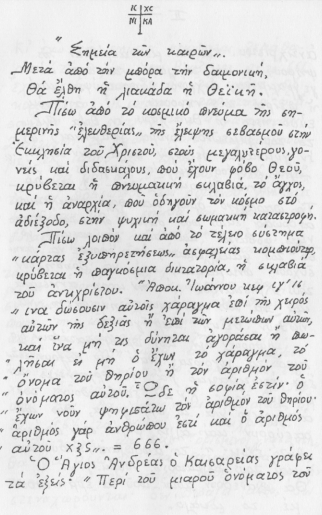 ΙC ΧC
ΝΙ ΚΑ
"Σημεῖα τῶν καιρῶν"..
Μετά ἀπό τήν μπόρα τήν δαιμονική,
Θά ἔλθη ἡ λιακάδα ἡ Θεϊκή.
Πίσω ἀπό τό κοσμικό πνεῦμα τῆς ση-
μερινῆς "ἐλευθερίας", τῆς ἔλειψης σεβασμοῦ στήν
Ἐκκλησία τοῦ Χριστοῦ, στούς μεγαλυτέρους, γο-
νεῖς καί διδασκάλους, πού ἔχουν φόβο Θεοῦ,
κρύβεται ἡ πνευματική σκλαβιά, τό ἄγχος,
καί ἡ ἀναρχία, πού ὁδηγοῦν τόν κόσμο στό
ἀδιέξοδο, στήν ψυχική καί σωματική καταστροφή.
Πίσω λοιπόν καί ἀπό τό τέλειο σύστημα
"κάρτας ἐξυπηρετήσεως" ἀσφαλείας κομπιοῦτερ,
κρύβεται ἡ παγκόσμια δικτατορία, ἡ σκλαβιά
τοῦ ἀντιχρίστου. "Ἀποκ. Ἰωάννου κεφ ιγ' 16
"ἵνα δώσουσιν αὐτοῖς χάραγμα ἐπί τῆς χειρός
αὐτῶν τῆς δεξιᾶς ἤ ἐπί τῶν μετώπων αὐτῶν,
"καί ἵνα μή τις δύνηται ἀγοράσαι ἤ πω-
"λῆσαι εἰ μή ὁ ἔχων τό χάραγμα, τό
"ὄνομα τοῦ θηρίου ἤ τόν ἀριθμόν τοῦ
"ὀνόματος αὐτοῦ. Ὧδε ἡ σοφία ἐστίν· ὁ
"ἔχων νοῦν ψηφισάτω τόν ἀριθμόν τοῦ θηρίου·
"ἀριθμός γάρ ἀνθρώπου ἐστί καί ὁ ἀριθμός
"αὐτοῦ χξς".. = 666.
Ὁ Ἅγιος Ἀνδρέας ὁ Καισαρείας γράφει
τά ἑξῆς: "Περί τοῦ μιαροῦ ὀνόματος τοῦ